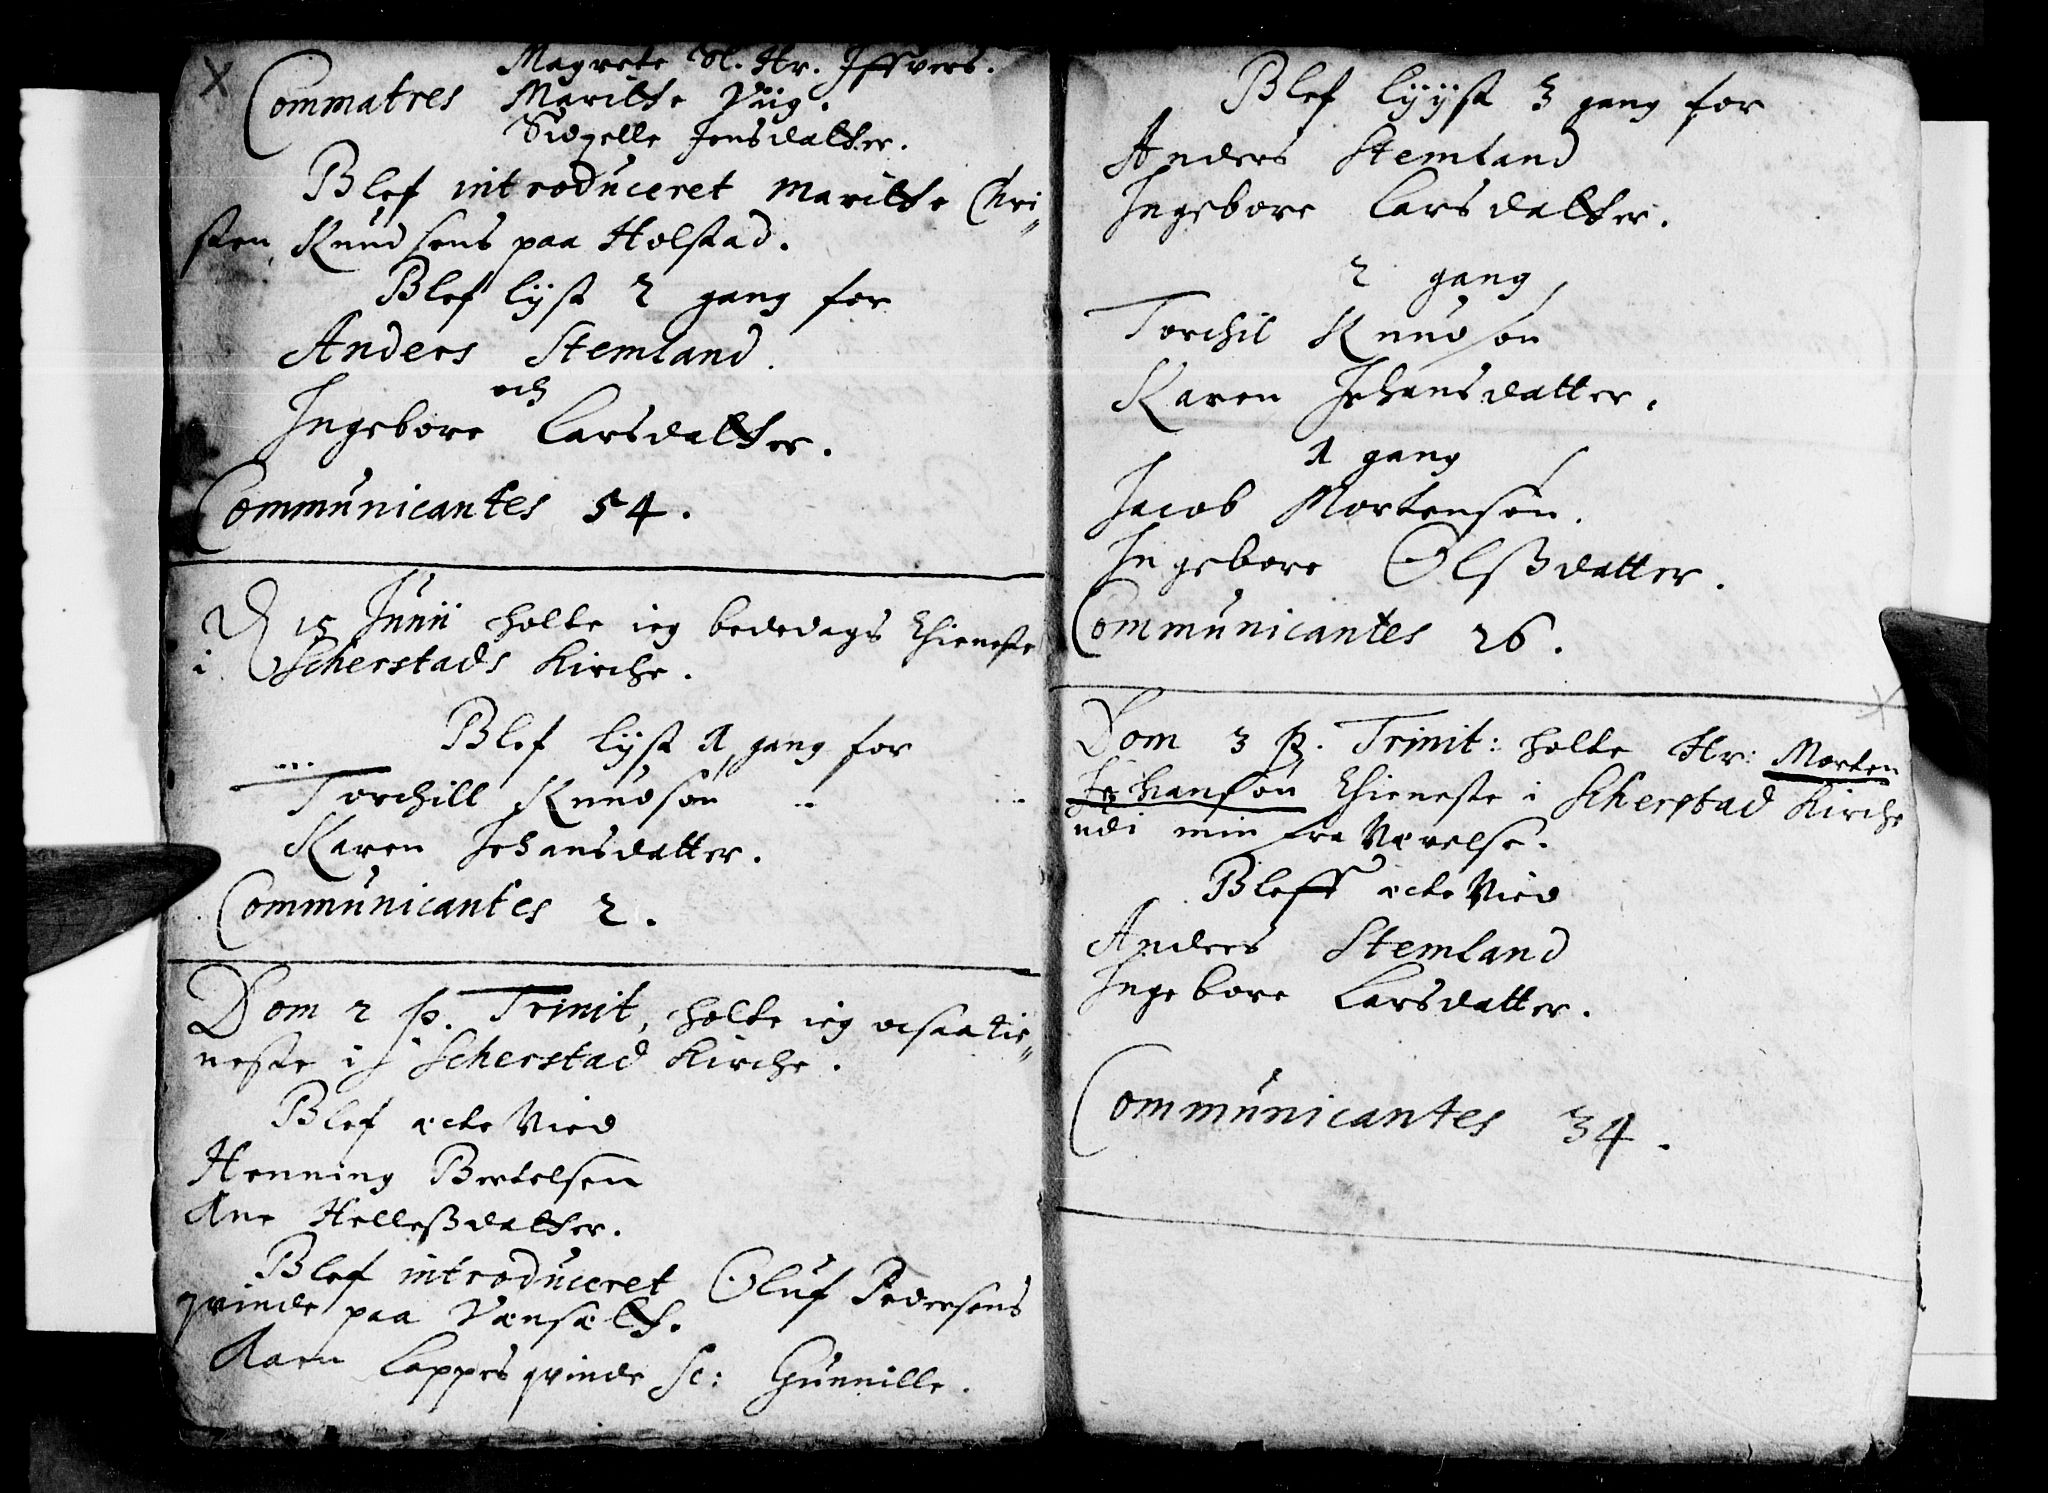 Magrete Sl. Hr. Iffvers.
Commatres Maritte Viig.
Sidzelle Jensdatter.
Blef introduceret Maritte Chri„
sten Knudsens paa Holstad.
Blef liyst 2 gang for
Anders Stemland.
och
Ingebore Larsdatter.
Communicantes 54.
D 15 Junii holte ieg bededags thieneste
i Scherstads Kirche.
Blef liyst 1 gang for
Torchill Knudsøn
Karen Johansdatter.
Communicantes 2.
Dom 2 p. Trinit, holte ieg ocsaa tie„
neste i Scherstad Kirche.
Blef ecte Vied
Henning Bertelsen
Ane Helleßdatter.
Blef introduceret Oluf Pedersens
qvinde paa
Lappes qvinde sc: Gunnille.
Blef liyst 3 gang for
Anders Stemland
Ingebore Larsdatter.
2 gang
Torchil Knudsøn
Karen Johansdatter.
1 gang
Jacob Mortensøn.
Ingebore Olßdatter.
Communicantes 26.
Dom 3 p. Trinit: holte Hr: Morten
Johansøn thieneste i Scherstad Kirche
udi min fra Værelse.
Bleff ecte Vied
Anders Stemland
Ingebore Larsdatter.
Communicantes 34.